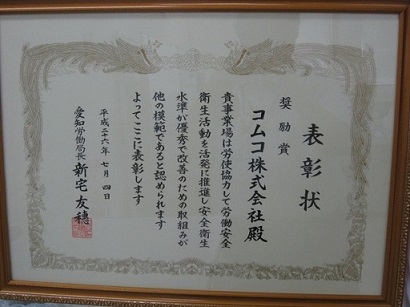 表彰状
奨励賞
コムコ株式会社殿
貴事業場は労使協力して労働安全
衛生活動を活発に推進し安全衛生
水準が優秀で改善のための取組みが
他の模範であると認められます
よってここに表彰します
平成二十六年七月四日
愛知労働局長 新宅友穗